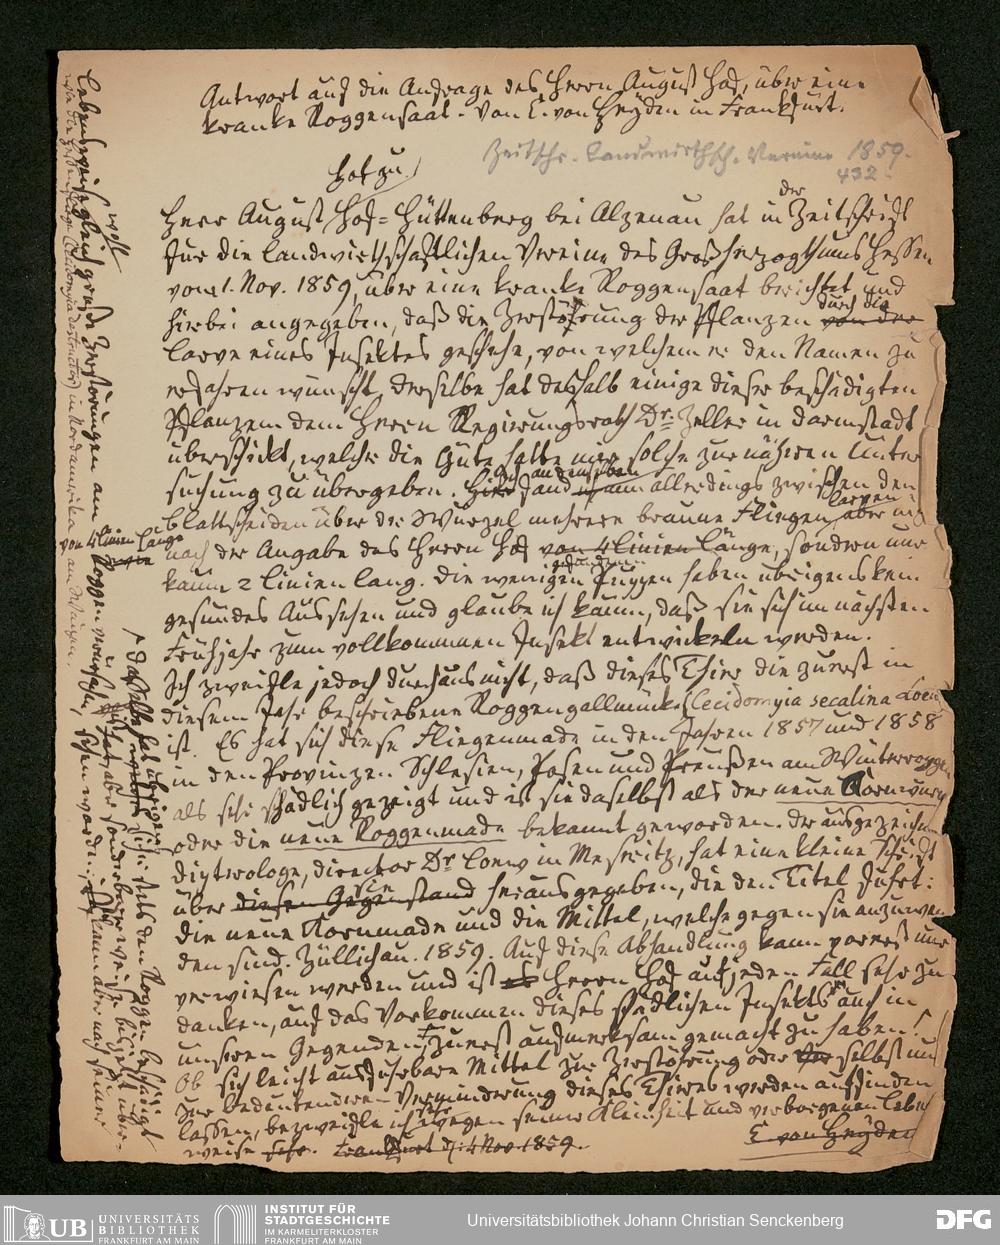 Antwort auf die Anfrage des Herrn August Hof, über eine
kranke Roggensaat. Von C. von Heyden in Frankfurt.
Zeitschr. landwirthsch. Vereine 1859.
432.
Herr August Hof-Hüttenberg bei Alzenau hat in der Zeitschrift
für die landwirthschaftlichen Vereine des Großherzogthums Hessen
vom 1. Nov. 1859, über eine kranke Roggensaat berichtet und
hierbei angegeben, daß die Zerstörung der Pflanzen von der durch die
Larve eines Insektes geschehe, von welchem er den Namen zu
erfahren wünscht, derselbe hat deshalb einige dieser beschädigten
Pflanzen dem Herrn Regierungsrath Dr. Zeller in Darmstadt
überschickt, welcher die Güte hatte mir solche zur nähren Unter
suchung zu übergeben. fand allerdings zwischen den
Blattscheiden über der Wurzel mehrere braune Fliegen larven, aber
nach der Angabe des Herrn Hof von 4 Linien Länge, sondern nur
kaum 2 Linien lang. Die wenigen gefundenen Puppen haben übrigens kein
gesundes Aussehen und glaube ich kaum, daß sie sich im nächsten
Frühjahr zum vollkommnen Insekt entwickeln werden.
Ich zweifle jedoch durchaus nicht, daß dieses Thier die zuerst in
diesem Jahr beschriebene Roggengallmücke (Cecidomyia secalina Loew
ist. Es hat sich diese Fliegenmade in den Jahren 1857 und 1858
in den Provinzen Schlesien, Posen und Preußen am Winterroggen
als sehr schädlich gezeigt und ist sie daselbst als der neue Kornwurm
oder die neue Roggenmade bekannt geworden. Der ausgezeichn
Diptrologe, Director Dr Loew in Meseritz, hat eine kleine Schrift
über diesen Gegenstand sie herausgegeben, die den Titel führt:
die neue Kornmade und die Mittel, welche gegen sie anzuwen
den sind. Züllichau. 1859. Auf diese Abhandlung kann vorerst nur
verwiesen werden und ist es Herrn Hof auf jeden Fall sehr zu
danken, auf das Vorkommen dieses schädlichen Insekts auch in
unseren Gegenden zuerst aufmerksam gemacht zu haben!
Ob sich leicht ausführbare Mittel zur Zerstörung oder selbst nur
zur bedeutenderen Verminderung dieses Thieres werden auffinden
lassen, bezweifle ich sehr wegen seiner Kleinheit und verborgenen Lebens
weise sehr. Frankfurt d. 4 Nov. 1859.
C von Heyden
von 4 Linien Länge
Lebensweise gleich große Zerstörungen an
wie die Hessenfliege (Cecidomyia destructor) in Nordamerika am Waizen.
UB UNIVERSITÄTS
BIBLIOTHEK
FRANKFURT AM MAIN
INSTITUT FÜR
STADTGESCHICHTE
IM KARMELITERKLOSTER
FRANKFURT AM MAIN
Universitätsbibliothek Johann Christian Senckenberg
DFG